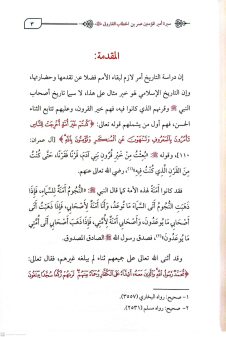 سيرة أمير المؤمنين عمر بن الخطاب الفاروق ﷺ
٣
المقدمة:
إن دراسة التاريخ أمر لازم لبقاء الأمم فضلا عن تقدمها وحضارتها،
وإن التاريخ الإسلامي لهو خير مثال على هذا، لا سيما تاريخ أصحاب
النبي ﷺ وقرنهم الذي كانوا فيه، فهم خير القرون، وعليهم تتابع الثناء
الحسن، فهم أول من يشملهم قوله تعالى: ﴿كُنتُمْ خَيْرَ أُمَّةٍ أُخْرِجَتْ لِلنَّاسِ
تَأْمُرُونَ بِالْمَعْرُوفِ وَتَنْهَوْنَ عَنِ الْمُنكَرِ وَتُؤْمِنُونَ بِاللَّهِ﴾ [آل عمران:
١١٠]، وقوله ﷺ: "بُعِثْتُ مِنْ خَيْرِ قُرُونِ بَنِي آدَمَ، قَرْنًا فَقَرْنًا، حَتَّى كُنْتُ
مِنَ القَرْنِ الَّذِي كُنْتُ فِيهِ"(١)، رضي الله تعالى عنهم.
فقد كانوا أمَنَةً لهذه الأمة كما قال النبي ﷺ: "النُّجُومُ أَمَنَةٌ لِلسَّمَاءِ، فَإِذَا
ذَهَبَتِ النُّجُومُ أَتَى السَّمَاءَ مَا تُوعَدُ، وَأَنَا أَمَنَةٌ لِأَصْحَابِي، فَإِذَا ذَهَبْتُ أَتَى
أَصْحَابِي مَا يُوعَدُونَ، وَأَصْحَابِي أَمَنَةٌ لِأُمَّتِي، فَإِذَا ذَهَبَ أَصْحَابِي أَتَى أُمَّتِي
مَا يُوعَدُونَ"(٢)، فصدق رسول الله ﷺ الصادق المصدوق.
وقد أثنى الله تعالى على جميعهم ثناء لم يبلغه غيرهم، فقال تعالى:
﴿مُحَمَّدٌ رَسُولُ اللَّهِ وَالَّذِينَ مَعَهُ أَشِدَّاءُ عَلَى الْكُفَّارِ رُحَمَاءُ بَيْنَهُمْ تَرَاهُمْ رُكَّعًا سُجَّدًا يَبْتَغُونَ
١- صحيح: رواه البخاري (٣٥٥٧).
٢- صحيح: رواه مسلم (٢٥٣١).